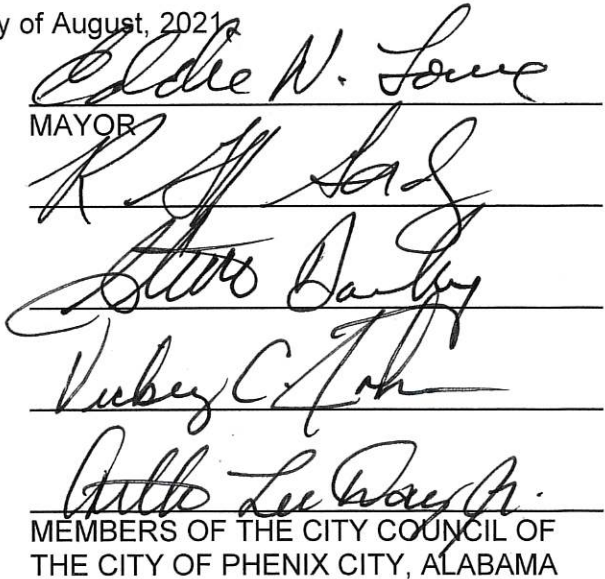 y of August, 2021.
Eddie N. Lowe
MAYOR
R.
Steve Bailey
Vickey C.
Arthur Lee Day Jr.
MEMBERS OF THE CITY COUNCIL OF
THE CITY OF PHENIX CITY, ALABAMA